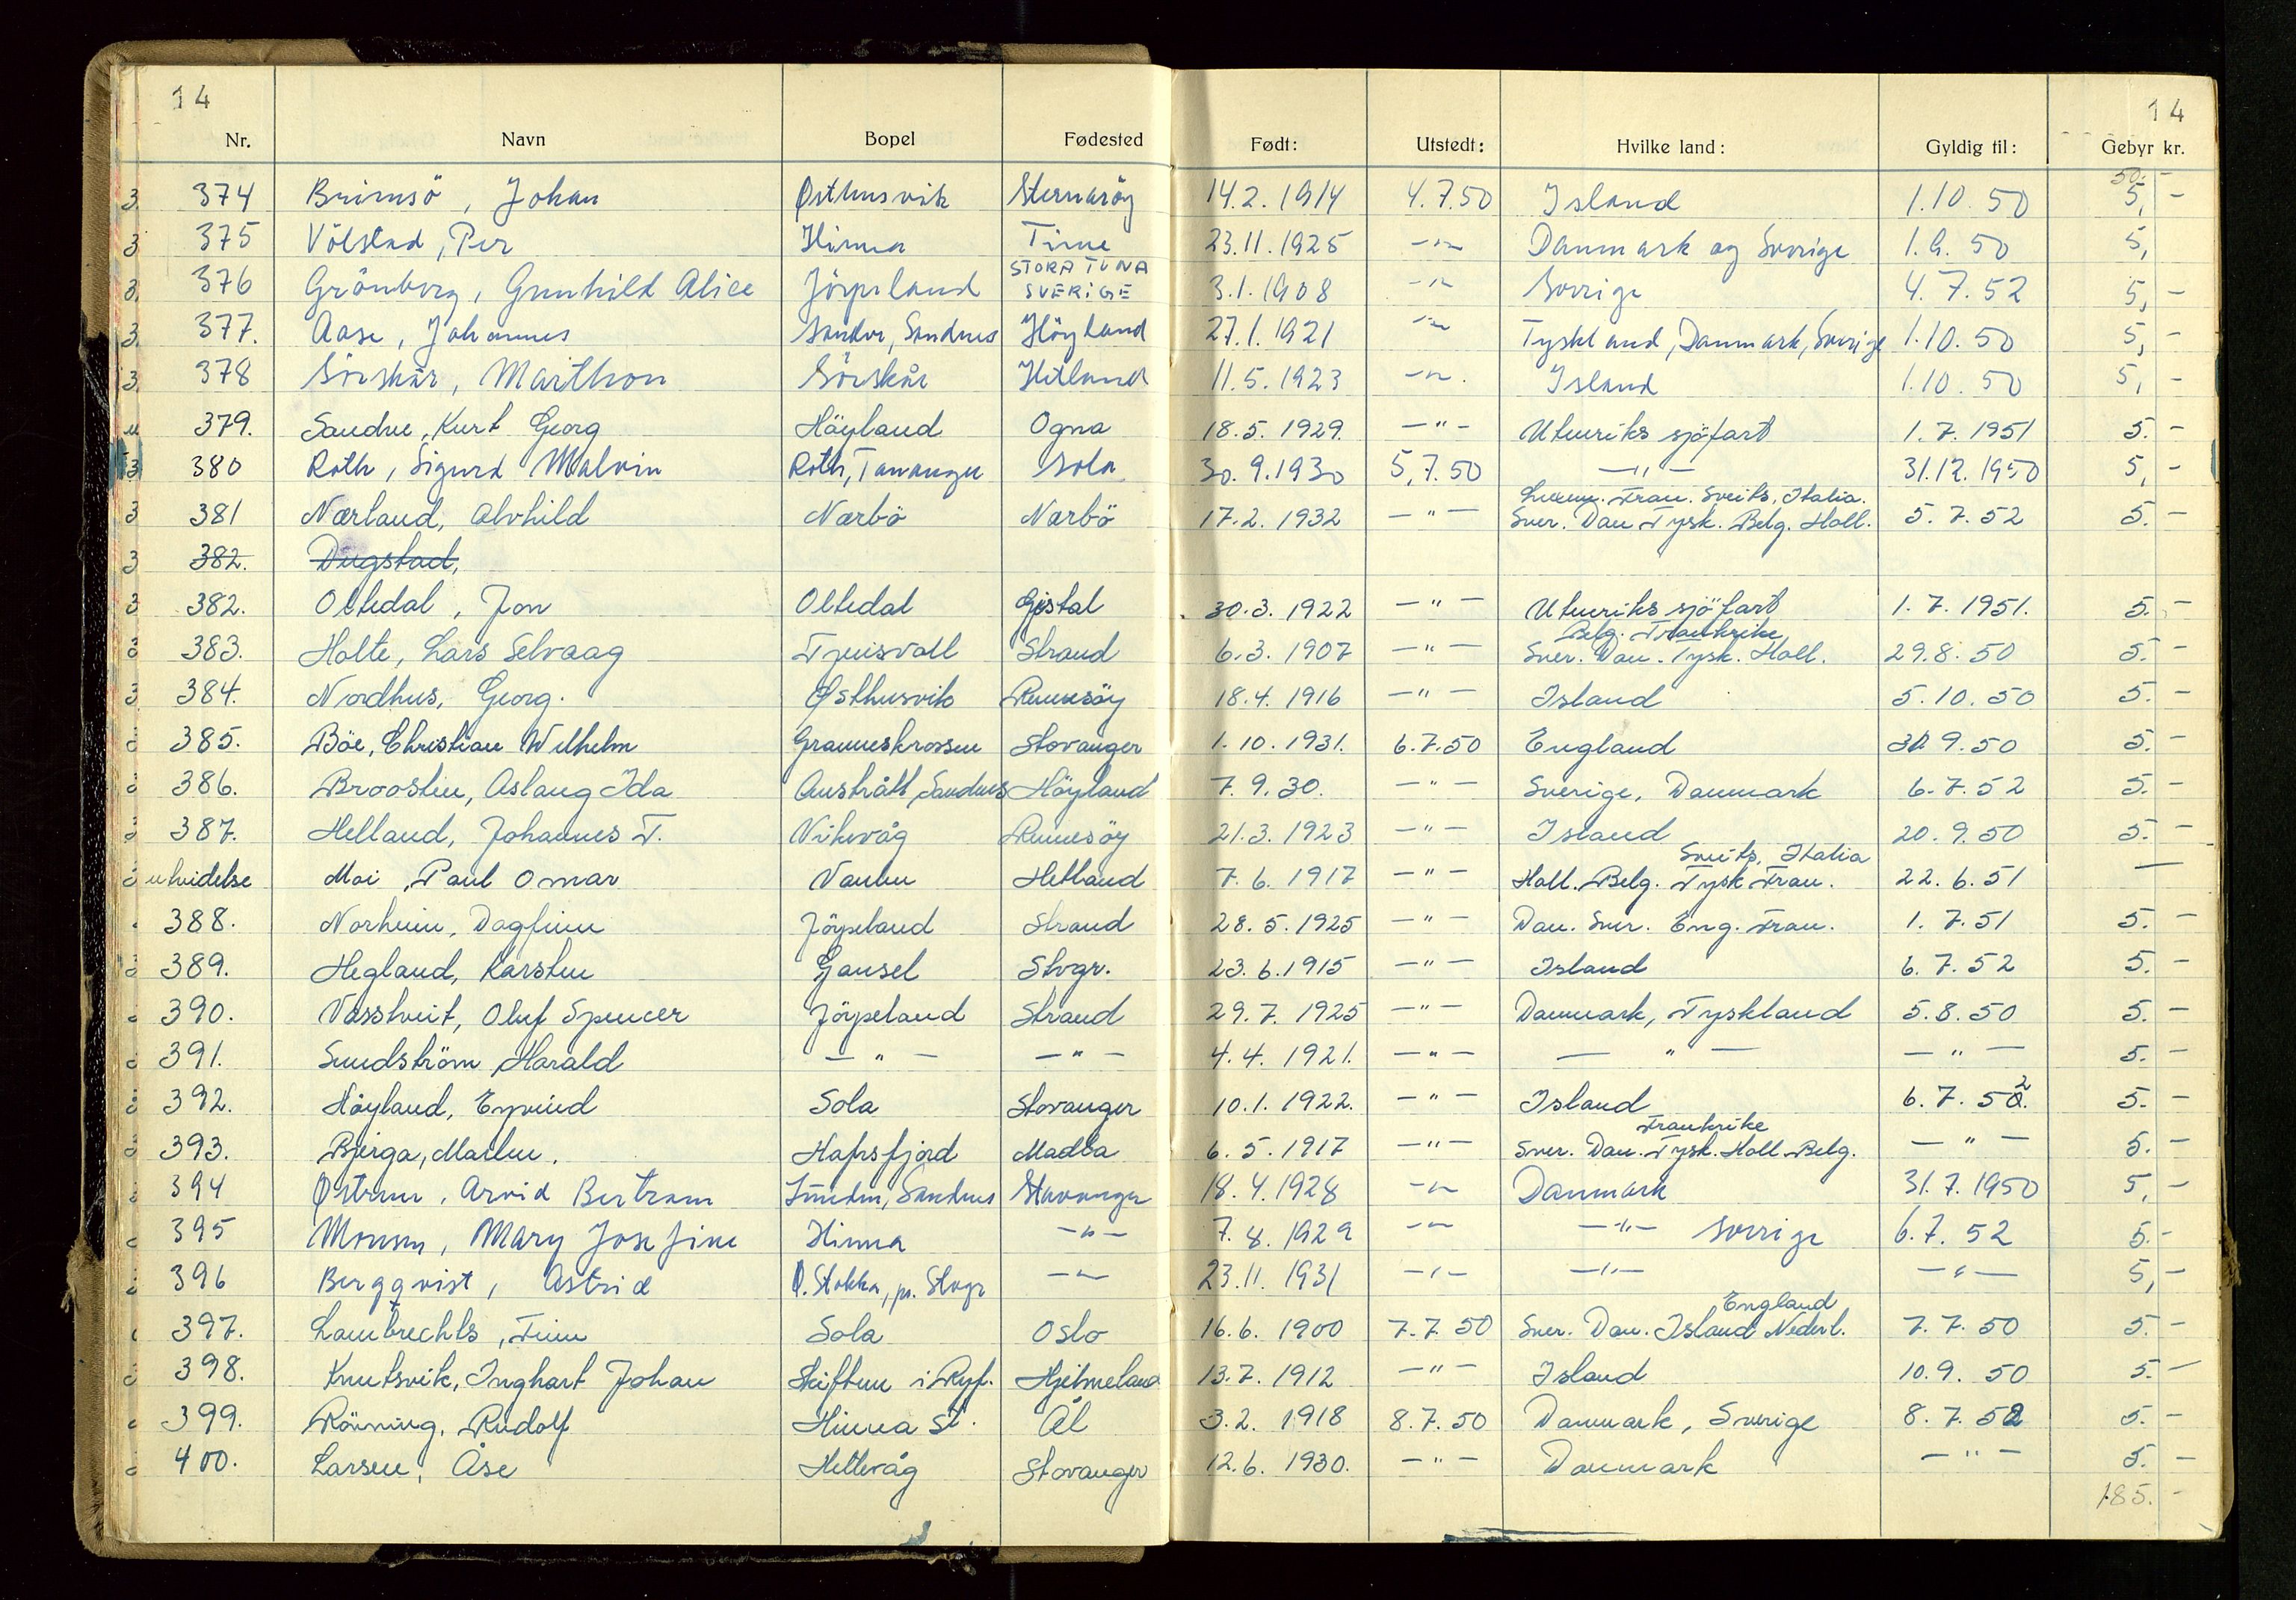 14
14
Nr. Navn Bopel Fødested Født: Utstedt: Hvilke land: Gyldig til: Gebyr kr.
50.-
374 Brimsö, Johan Østhusvik Sternaröy 14.2.1914 4.7.50 Island 1.10.50 5,-
375 Völstad, Per Hinna Time 23.11.1925 -"- Danmark og Sverige 1.9.50 5,
STORA TUNA
376 Grönberg, Gunhild Alice Jörpeland SVERIGE 3.1.1908 -"- Sverige 4.7.52 5,-
377. Aase, Johannes Sandve, Sandnes Höyland 27.1.1921 -"- Tyskland, Danmark, Sverige 1.10.50 5,-
378 Sörskår, Marthon Sörskår Hetland 11.5.1923 -"-. Island 1.10.50 5,-
379. Sandve, Kurt Georg Höyland Ogna 18.5.1929. -"- Utenriks sjöfart 1.7.1951 5.-
380 Roth, Sigurd Malvin Roth, Tananger Sola 30.9.1930 5.7.50 -"- 31.12.1950 5,-
Luxemy. Fran. Sveits, Italia.
381 Nærland, Alvhild Nærbö Nærbö 17.2.1932 -"- Sver. Dan Tysk. Belg. Holl. 5.7.52 5.-
382. Dugstad,
382. Oltedal, Jon Oltedal Gjestal 30.3.1922 -"- Utenriks sjöfart 1.7.1951. 5.-
Belg. Frankrike
383. Holte, Lars Selvaag Tjensvoll Strand 6.3.1907 -"- Sver. Dan. Tysk. Holl. 29.8.50 5.-
384. Nordhus, Georg. Østhusvik Rennesöy 18.4.1916 -"- Island 5.10.50 5.-
385. Böe, Christian Wilhelm Granneskrossen Stavanger 1.10.1931. 6.7.50 England 30.9.50 5.-
386. Broostein, Aslaug Ida Austrått, Sandnes Höyland 7.9.30. -"- Sverige, Danmark 6.7.52 5.-
387. Helland, Johannes T. Vikevåg Rennesöy 21.3.1923 -"- Island 20.9.50 5.-
Sveits, Italia
utvidelse Moi, Paul Omar Vaulen Hetland 7.6.1917 -"- Holl. Belg. Tysk Fran. 22.6.51 —
388. Norheim, Dagfinn Jörpeland Strand 28.5.1925 -"- Dan. Sver. Eng. Fran. 1.7.51 5.-
389. Hegland, Karsten Gausel Stvgr. 23.6.1915 -"- Island 6.7.52 5.-
390. Vasstveit, Oluf Spencer Jörpeland Strand 29.7.1925 -"- Danmark, Tyskland 5.8.50 5.-
391. Sundström, Harald -"- -"- 4.4.1921. -"- -"- -"- 5.-
392. Höyland, Eyvind Sola Stavanger 10.1.1922. -"- Island 6.7.52. 5.-
Frankrike
393. Bjerga, Malene. Hafrsfjord Madla 6.5.1917 -"- Sver. Dan. Tysk. Holl. Belg. -"- 5.-
394 Østrem, Arvid Bertram Lunden, Sandnes Stavanger 18.4.1928 -"- Danmark 31.7.1950 5,-
395 Monsen, Mary Josefine Hinna -"- 7.8.1929 -"- -"- Sverige 6.7.52 5.-
396 Bergqvist, Astrid Ø. Stokka, pr. Stvgr -"- 23.11.1931 -"- -"- -"- 5,-
England
397. Lambrechts, Finn Sola Oslo 16.6.1900 7.7.50 Sver. Dan. Island Nederl. 7.7.50 5.-
398. Knutsvik, Inghart Johan Skiftun i Ryf. Hjelmeland 13.7.1912 -"- Island 10.9.50 5.-
399. Rönning, Rudolf Hinna st. Ål 3.2.1918 8.7.50 Danmark, Sverige 8.7.52 5.-
400. Larsen, Åse Hettevåg Stavanger 12.6.1930. -"- Danmark -"- 5.-
185.-